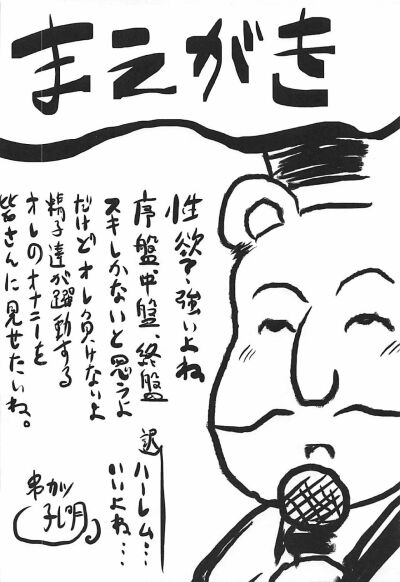 まえがき
性欲て強いよね
序盤、中盤、終盤
スキしかないと思うよ
だけどオレ負けないよ
精子達が躍動する
オレのオナニーを
皆さんに見せたいね。
訳 ハーレム…
いいよね…
串カツ
孔明